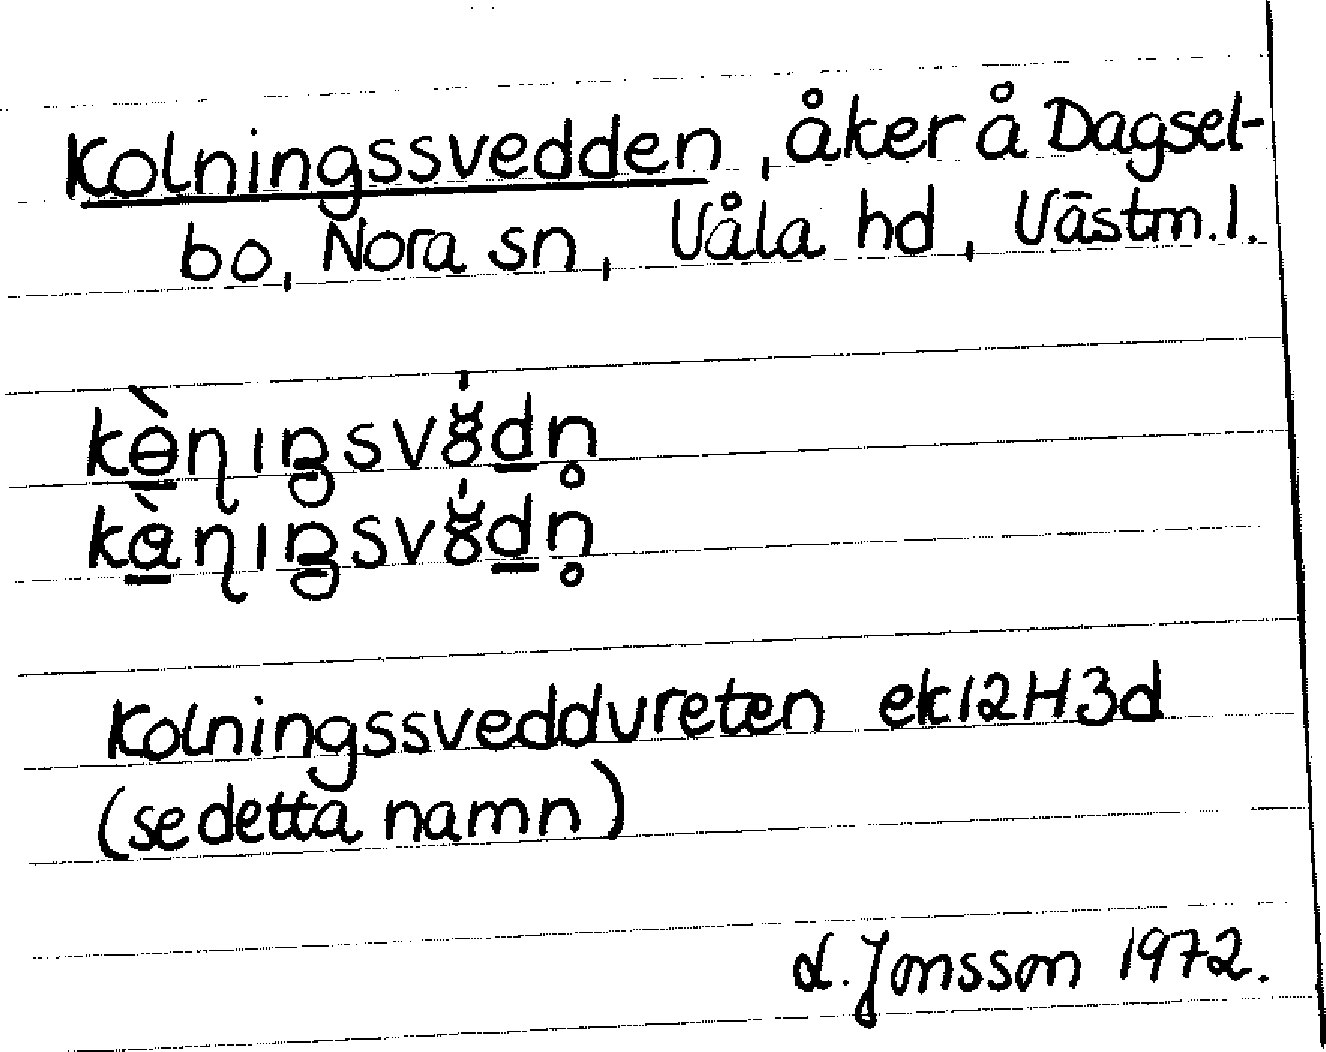 Kolningssvedden, åker å Dagsel-
bo, Nora sn, Våla hd, Västm.l.
kɵ̀ɳɪŋsvɣ̆́dn̥
kàɳɪŋsvɣ̆́dn̥
Kolningssveddureten ek12H3d
(se detta namn)
L. Jonsson 1972.